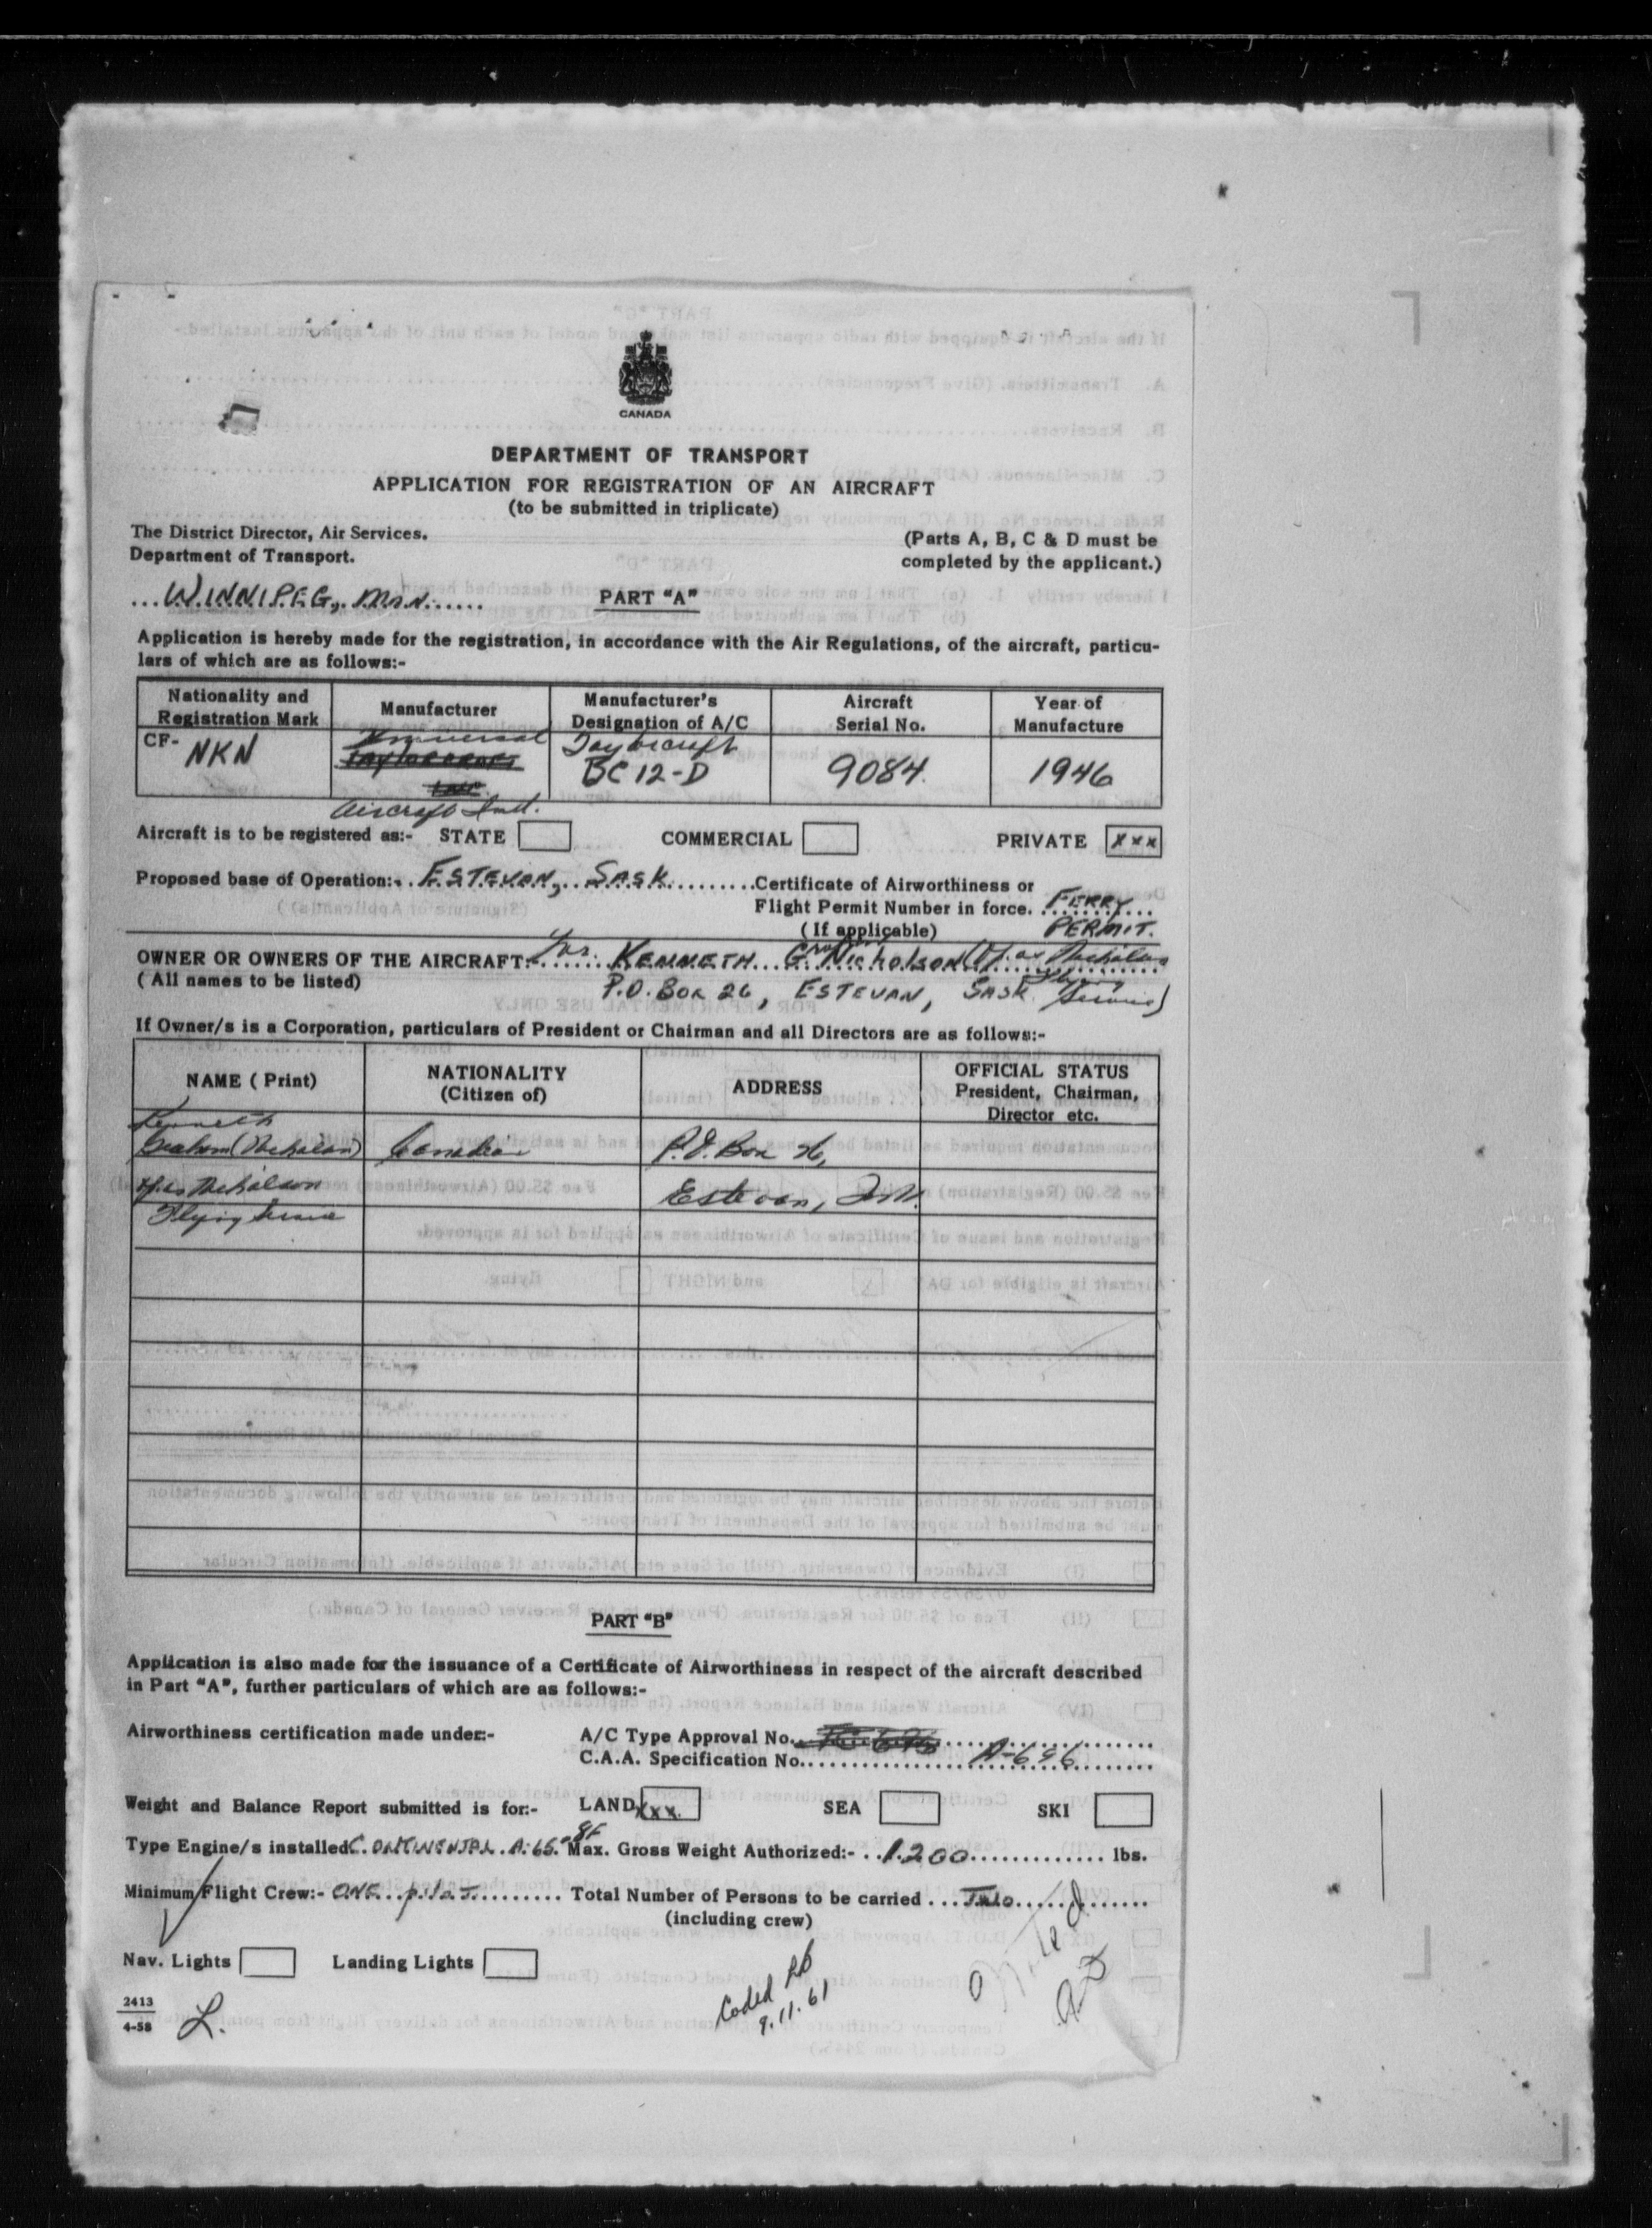 CANADA
DEPARTMENT OF TRANSPORT
APPLICATION FOR REGISTRATION OF AN AIRCRAFT
(to be submitted in triplicate)
The District Director, Air Services.
Department of Transport.
(Parts A, B, C & D must be
completed by the applicant.)
WINNIPEG, MAN.
PART "A"
Application is hereby made for the registration, in accordance with the Air Regulations, of the aircraft, particu-
lars of which are as follows:-
Nationality and Registration Mark Manufacturer Manufacturer's Designation of A/C Aircraft Serial No. Year of Manufacture
Universal Taylorcraft
CF- NKN BC 12-D 9084 1946
Aircraft Ind.
Aircraft is to be registered as:- STATE COMMERCIAL PRIVATE xxx
Proposed base of Operation:- ESTEVAN, SASK Certificate of Airworthiness or
Flight Permit Number in force. FERRY
(If applicable) PERMIT.
OWNER OR OWNERS OF THE AIRCRAFT:- KENNETH G. Nicholson (T/as Nicholson
(All names to be listed) P.O. Box 26, ESTEVAN, SASK. Flying Service)
If Owner/s is a Corporation, particulars of President or Chairman and all Directors are as follows:-
NAME (Print) NATIONALITY (Citizen of) ADDRESS OFFICIAL STATUS President, Chairman, Director etc.
Kenneth
Graham (Nicholson) Canadian P.O. Box 26,
T/as Nicholson Estevan, Sask.
Flying Service
PART "B"
Application is also made for the issuance of a Certificate of Airworthiness in respect of the aircraft described
in Part "A", further particulars of which are as follows:-
Airworthiness certification made under:- A/C Type Approval No.
C.A.A. Specification No. A-696
Weight and Balance Report submitted is for:- LAND xxx SEA SKI
Type Engine/s installed CONTINENTAL A-65-8F Max. Gross Weight Authorized:- 1200 lbs.
Minimum Flight Crew:- ONE pilot Total Number of Persons to be carried Two
(including crew)
Nav. Lights Landing Lights
Coded
9.11.61
2413
4-58
L.